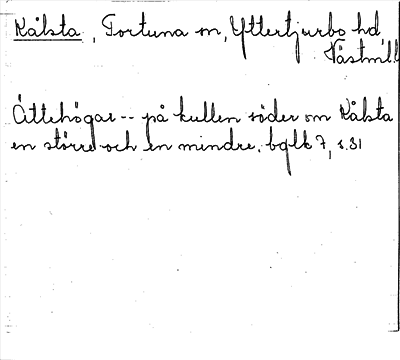 Kålsta, Fortuna m, Yttertjurbo hd,
Västml
Ättehögar -- på kullen söder om Kålsta
en större och en mindre. bglk 7, s.31